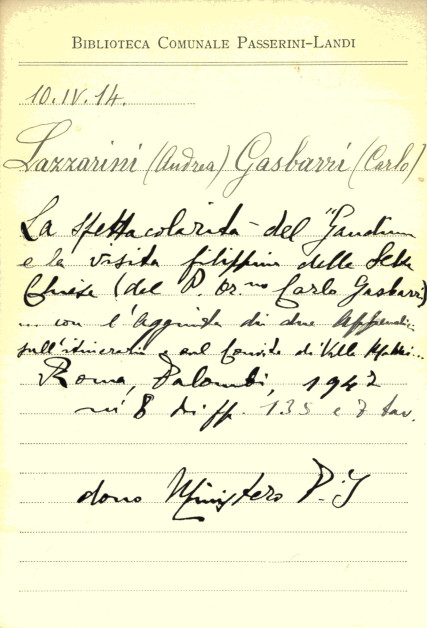 BIBLIOTECA COMUNALE PASSERINI-LANDI
10.IV.14.
Lazzarini (Andrea) Gasbarri (Carlo)
La spettacolarità del "Gaudium
e la visita filippina delle Sette
Chiese (del P. Or.no Carlo Gasbarri)
... con l'Aggiunta di due Appendici
sull'itinerario e sul Convito di Villa Mattei...
Roma, Palombi, 1947
in 8 di pp. 135 e 7 tav.
dono Ministero P.I